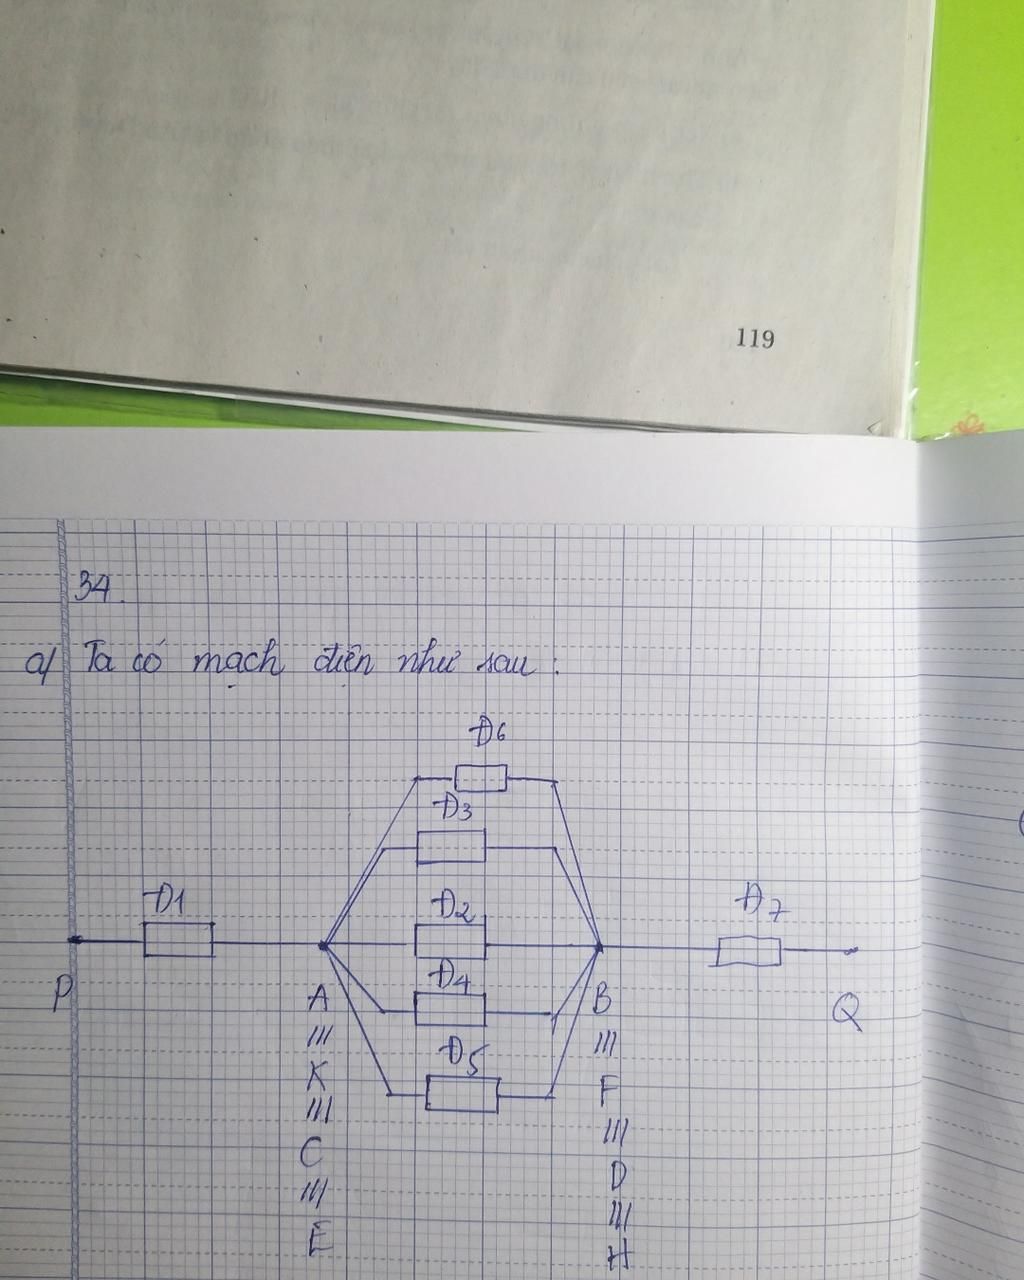 119
34.
a) Ta có mạch điện như sau:
Đ6
Đ3
Đ1
Đ2
Đ7
Đ4
P
A
B
Q
Đ5
K
F
C
D
E
H